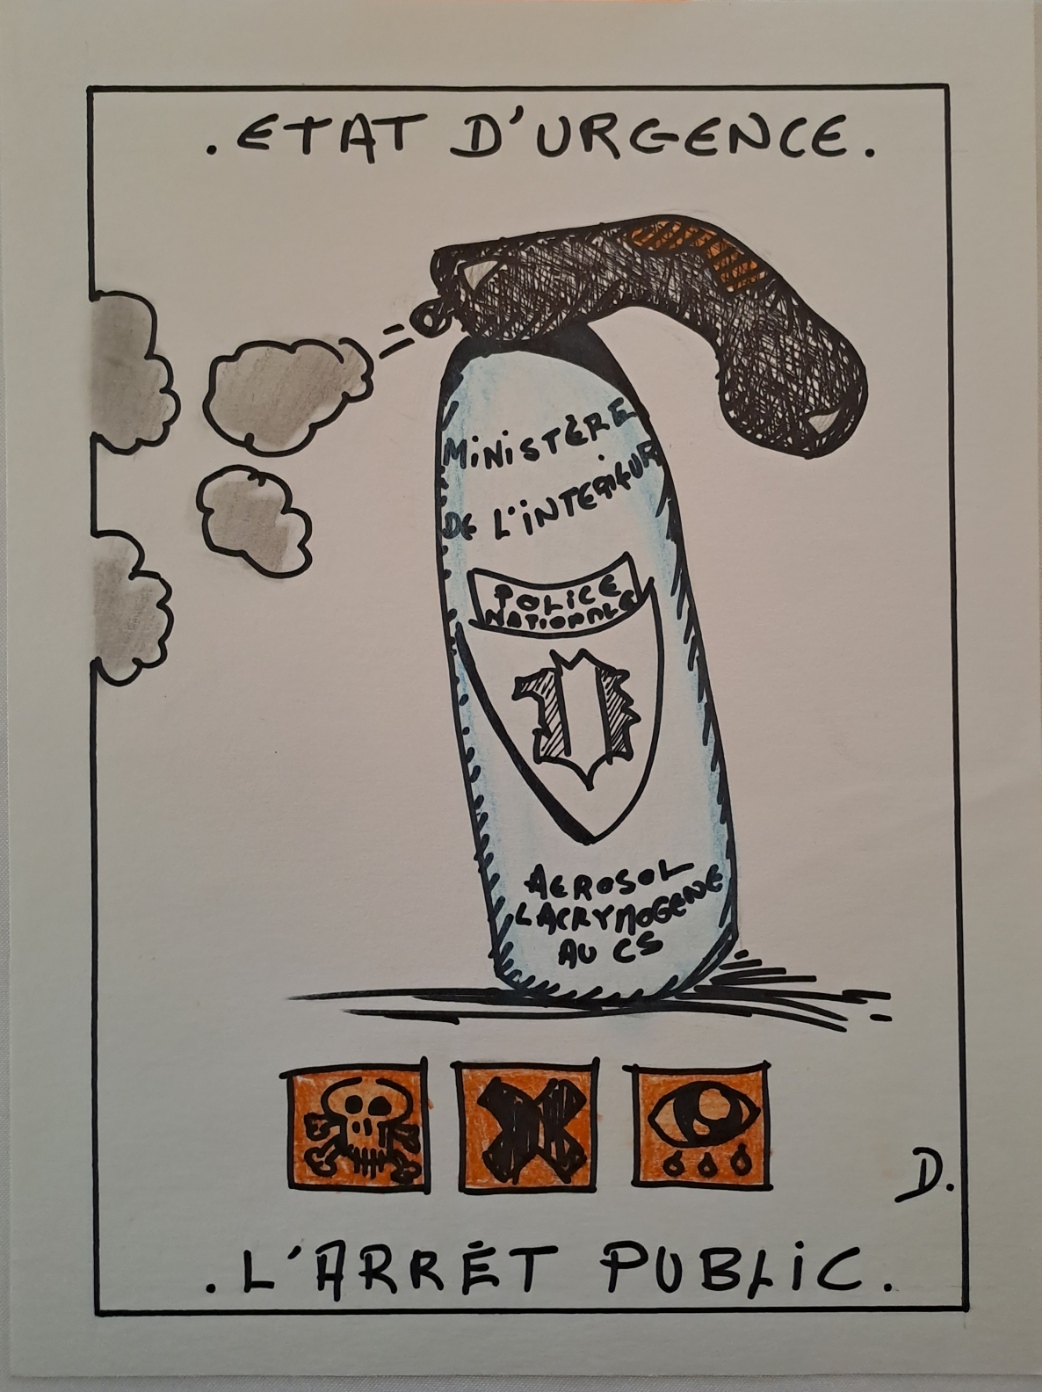 .ETAT D'URGENCE.
MINISTÈRE
DE L'INTERIEUR
POLICE
NATIONALE
AEROSOL
LACRYMOGENE
AU CS
D.
.L'ARRÉT PUBLIC.